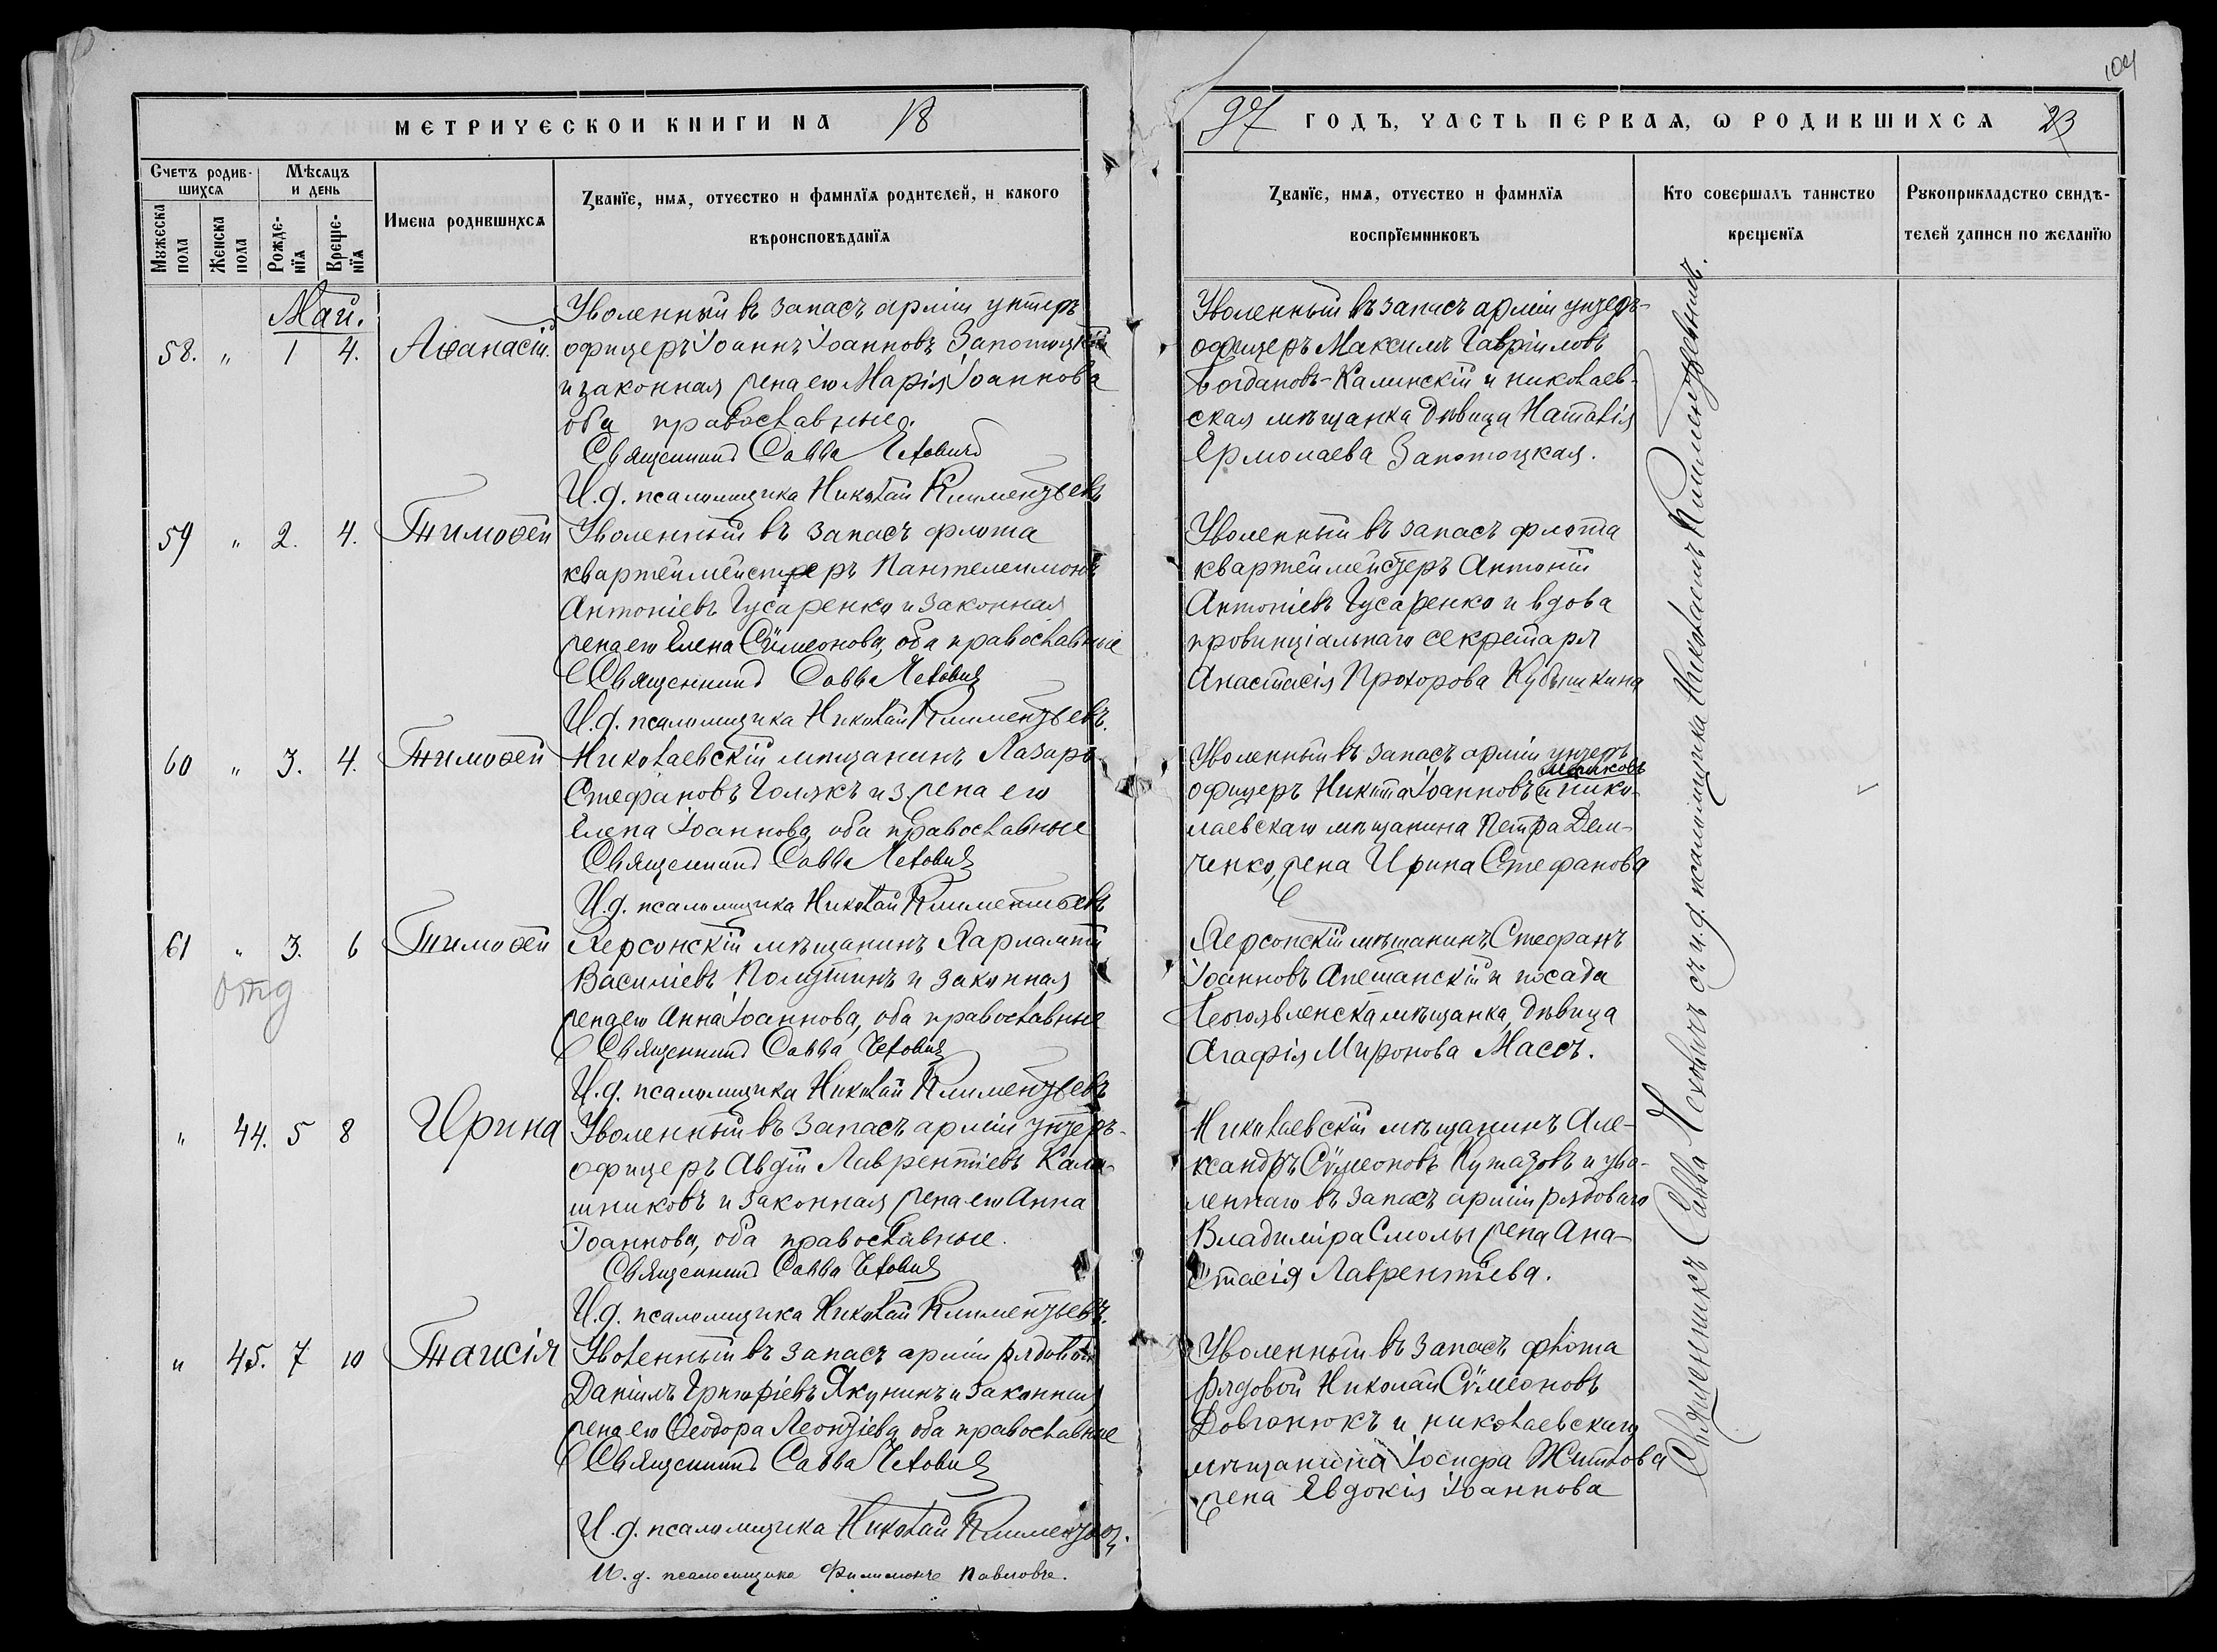 104
МЕТРИЧЕСКОИ КНИГИ NА 18
97 ГОДЪ, ЧАСТЬ ПЕРВАЯ, Ѡ РОДИВШИХСЯ 23
Счетъ родив-
шихся
Мѣсяцъ
и день
Мꙋжеска
пола
Женска
пола
Рожде-
нїя
Креще-
нїя
Имена родившихся
Званїе, имя, отчество и фамилїя родителей, и какого
вѣроисповѣданїя
Званїе, имя, отчество и фамилїя
воспрїемниковъ
Кто совершалъ таинство
крещенїя
Рꙋкоприкладство свидѣ-
телей записи по желанїю
Май.
58. " 1 4. Аѳанасій.
Уволенный въ запасъ арміи унтеръ
офицеръ Іоаннъ Іоанновъ Запотоцкій
и законная жена его Марія Іоаннова
оба православные.
Священникъ Савва Чехович
И.д. псаломщика Николай Климентьевъ
Уволенный въ запасъ арміи унтеръ-
офицеръ Максимъ Гавріиловъ
Богдановъ-Калинскій и николаев-
ская мѣщанка дѣвица Наталія
Ермолаева Запотоцкая.
59 " 2. 4. Тимоѳей
Уволенный въ запасъ флота
квартеймейстеръ Пантелеимонъ
Антоніевъ Гусаренко и законная
жена его Елена Сѵмеонова, оба православные
Священникъ Савва Чехович
И.д. псаломщика Николай Климентьевъ.
Уволенный въ запасъ флота
квартеймейстеръ Антоній
Антоніевъ Гусаренко и вдова
провинціальнаго секретаря
Анастасія Прохорова Кубышкина
60 " 3. 4. Тимоѳей
Николаевскій мѣщанинъ Лазарь
Стефановъ Голякъ и з. жена его
Елена Іоаннова, оба православные
Священникъ Савва Чехович
И.д. псаломщика Николай Климентьевъ
Уволенный въ запасъ арміи унтеръ
офицеръ Никита Іоанновъ и нико-
лаевскаго мѣщанина Петра Дем-
ченко, жена Ирина Стефанова
61 " 3. 6 Тимоѳей
отд
Херсонскій мѣщанинъ Харлампій
Василіевъ Полутинъ и законная
жена его Анна Іоаннова, оба православные
Священникъ Савва Чехович
И.д. псаломщика Николай Климентьевъ
Херсонскій мѣщанинъ Стефанъ
Іоанновъ Апешанскій и посада
Богоявленска мѣщанка, дѣвица
Агафія Миронова Массъ.
" 44. 5 8 Ирина
Уволенный въ запасъ арміи унтеръ-
офицеръ Авдій Лаврентіевъ Кала-
шниковъ и законная жена его Анна
Іоаннова, оба православные.
Священникъ Савва Чехович
И.д. псаломщика Николай Климентьевъ.
Николаевскій мѣщанинъ Але-
ксандръ Сѵмеоновъ Кутазовъ и уво-
леннаго въ запасъ арміи рядоваго
Владиміра Смолы жена Ана-
стасія Лаврентіева.
" 45. 7 10 Таисія
Уволенный въ запасъ арміи рядовой
Даніилъ Григоріевъ Якунинъ и законная
жена его Ѳеодора Леонтіева, оба православные
Священникъ Савва Чехович
И.д. псаломщика Николай Климентьевъ.
И.д. псаломщика Филимонъ Павловъ.
Уволенный въ запасъ флота
рядовой Николай Сѵмеоновъ
Довганюкъ и николаевскаго
мѣщанина Іосифа Житкова
жена Евдокія Іоаннова
Священникъ Савва Чеховичъ съ и.д. псаломщика Николаемъ Климентьевымъ.